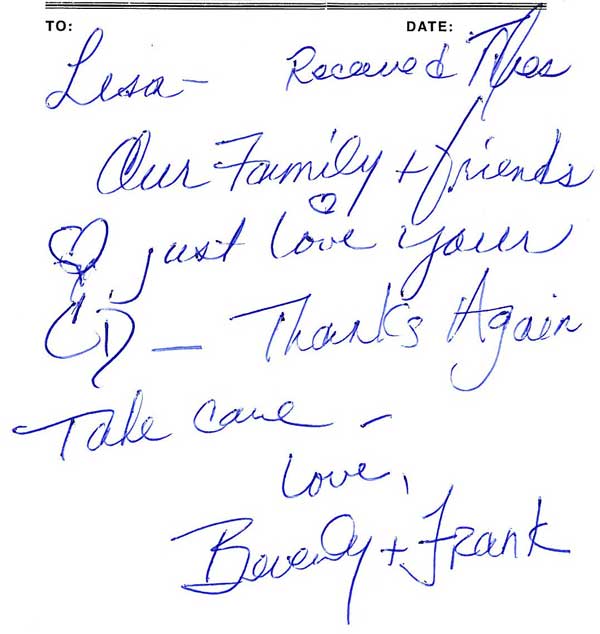 TO: DATE:
Lisa - Received This
Our Family + friends
just love your
CD - Thanks Again
Take care -
Love,
Beverly + Frank